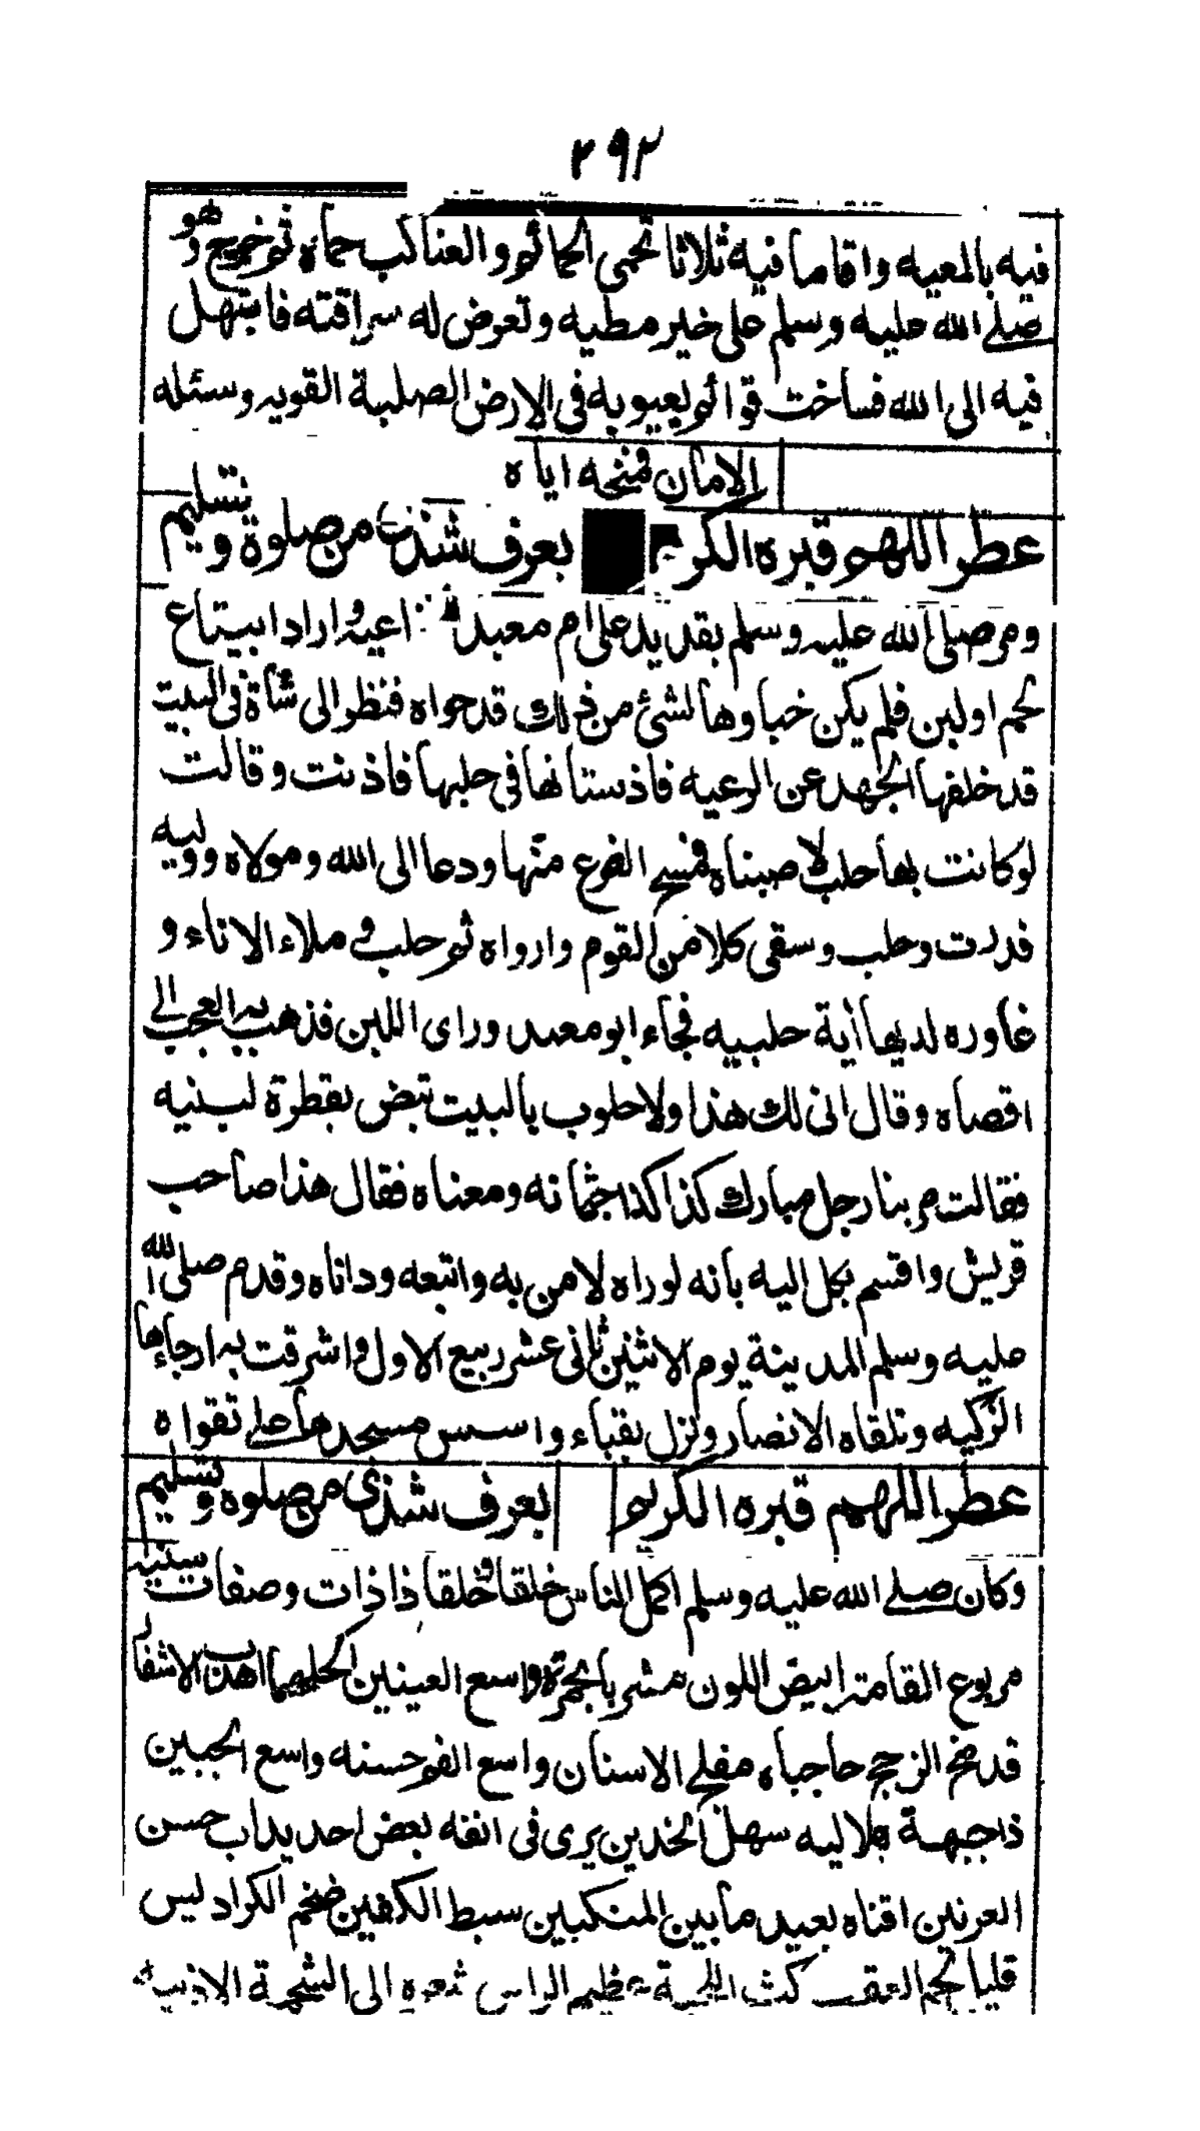 ٢٩٢
فيه بالمعيه واقاما فيه ثلاثا تحمى الحمائم والعناكب حماه ثم خرج وهو
صلے الله عليه وسلم على خير مطيه وتعرض له سراقته فابتهل
فيه الى الله فساخت قوائم يعبوبه فى الارض الصلبة القويه وسئله
الامان فمنحه اياه
عطر اللهم قبره الكريم بعرف شذى من صلوة وتسليم
ومر صلى الله عليه وسلم بقديد على ام معبد اعيه واراد ابيتاع
لحم اولبن فلم يكن خباوها لشئ من ذلك قد حواه فنظر الى شاة فى البيت
قد خلفها الجهد عن الرعيه فاذستانها فى حلبها فاذنت وقالت
لو كانت بها حلب لاصبناه فمسح الضرع منها ودعا الى الله ومولاه ووليه
فدرت وحلب وسقى كلا من القوم وارواه ثم حلب و ملاء الاناء و
غاوره لديها أية حلبيه فجاء ابو معبد وراى اللبن فذهب به العجب الى
اقصاه وقال انى لك هذا ولا حلوب بالبيت تبض بقطرة لبنيه
فقالت مر بنا رجل مبارك كذا كذا جثمانه ومعناه فقال هذا صاحب
قريش واقسم بكل اليه بانه لو راه لامن به واتبعه وداناه وقدم صلى الله
عليه وسلم المدينة يوم الاثنين ثانى عشر ربيع الاول واشرقت به ارجاءها
الزكيه وتلقاه الانصار ونزل بقباء واسس مسجدها على تقواه
عطر اللهم قبره الكريم بعرف شذى من صلوة وتسليم
وكان صلے الله عليه وسلم اكمل الناس خلقا وخلقا ذا ذات وصفات سنيه
مربوع القامته ابيض اللون مشربا بحمرة واسع العينين اكحلهما اهدب الاشفار
قد منح الزجج حاجباه مفلج الاسنان واسع الفم حسنه واسع الجبين
ذا جبهة هلاليه سهل الخدين يرى فى انفه بعض احديداب حسن
العرنين اقناه بعيد ما بين المنكبين سبط الكفين ضخم الكراديس
قليل لحم العقب كث اللحية عظيم الراس شعره الى الشحمة الاذنيه